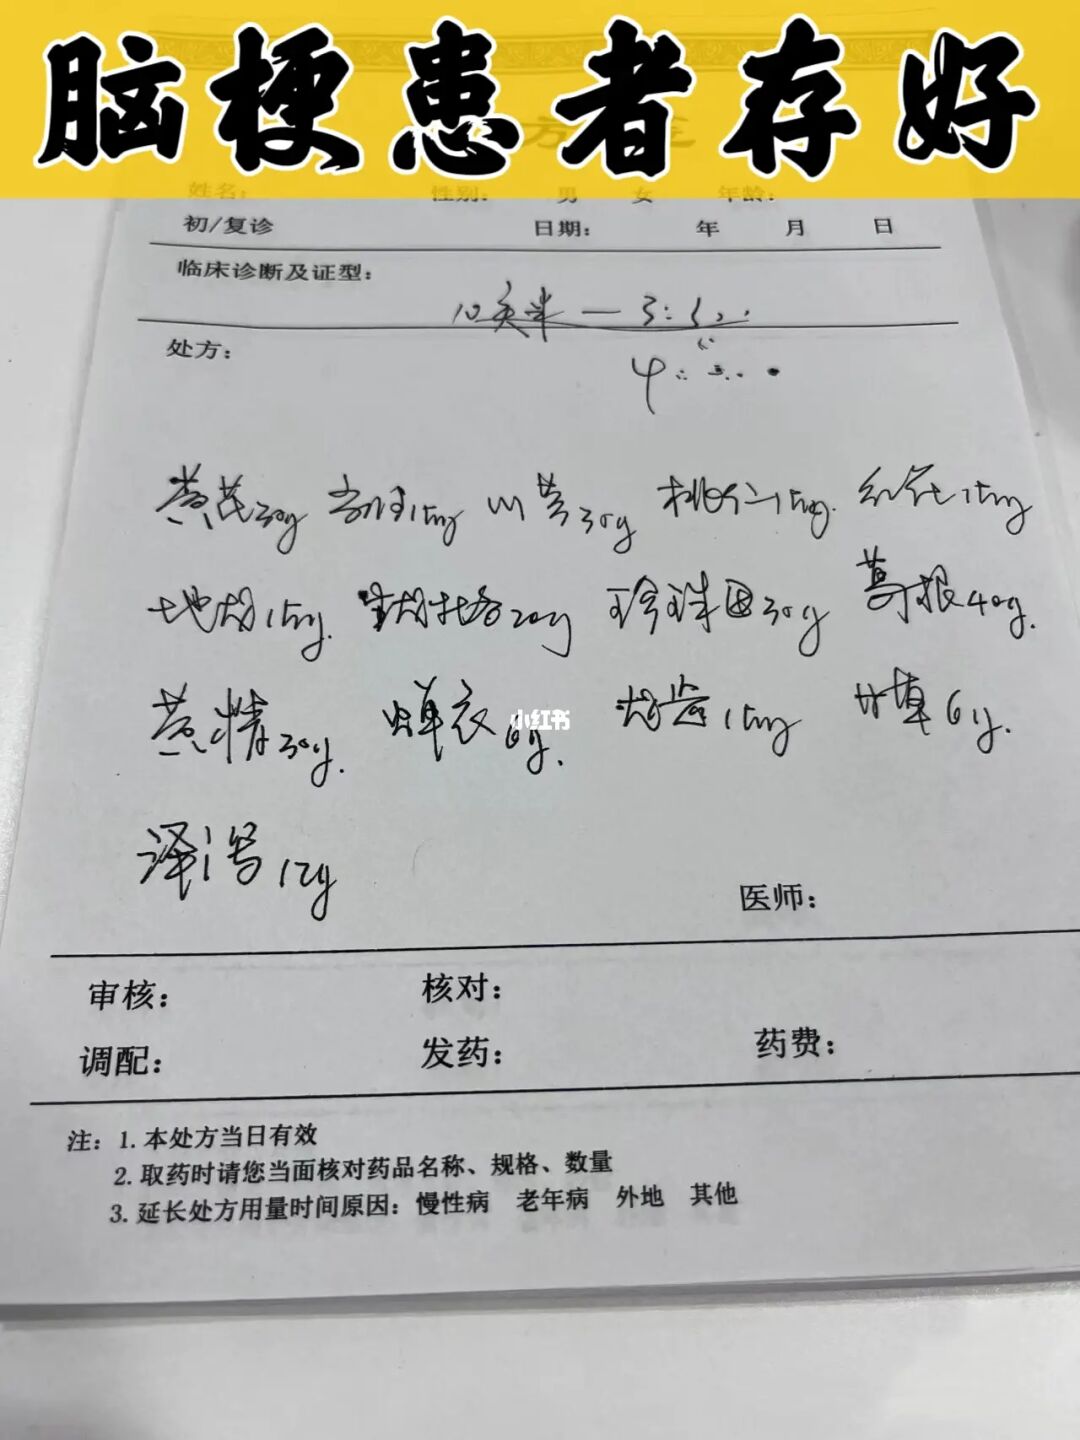 脑梗患者存好
姓名: 性别: 男 女 年龄:
初/复诊 日期: 年 月 日
临床诊断及证型:
处方:
黄芪30g 当归15g 川芎30g 桃仁15g. 红花15g
地龙15g. 20g 珍珠母30g 葛根40g.
黄精30g. 蝉衣6g. 龙齿15g 甘草6g.
小红书
泽泻12g
医师:
审核: 核对:
调配: 发药: 药费:
注: 1. 本处方当日有效
2. 取药时请您当面核对药品名称、规格、数量
3. 延长处方用量时间原因: 慢性病 老年病 外地 其他